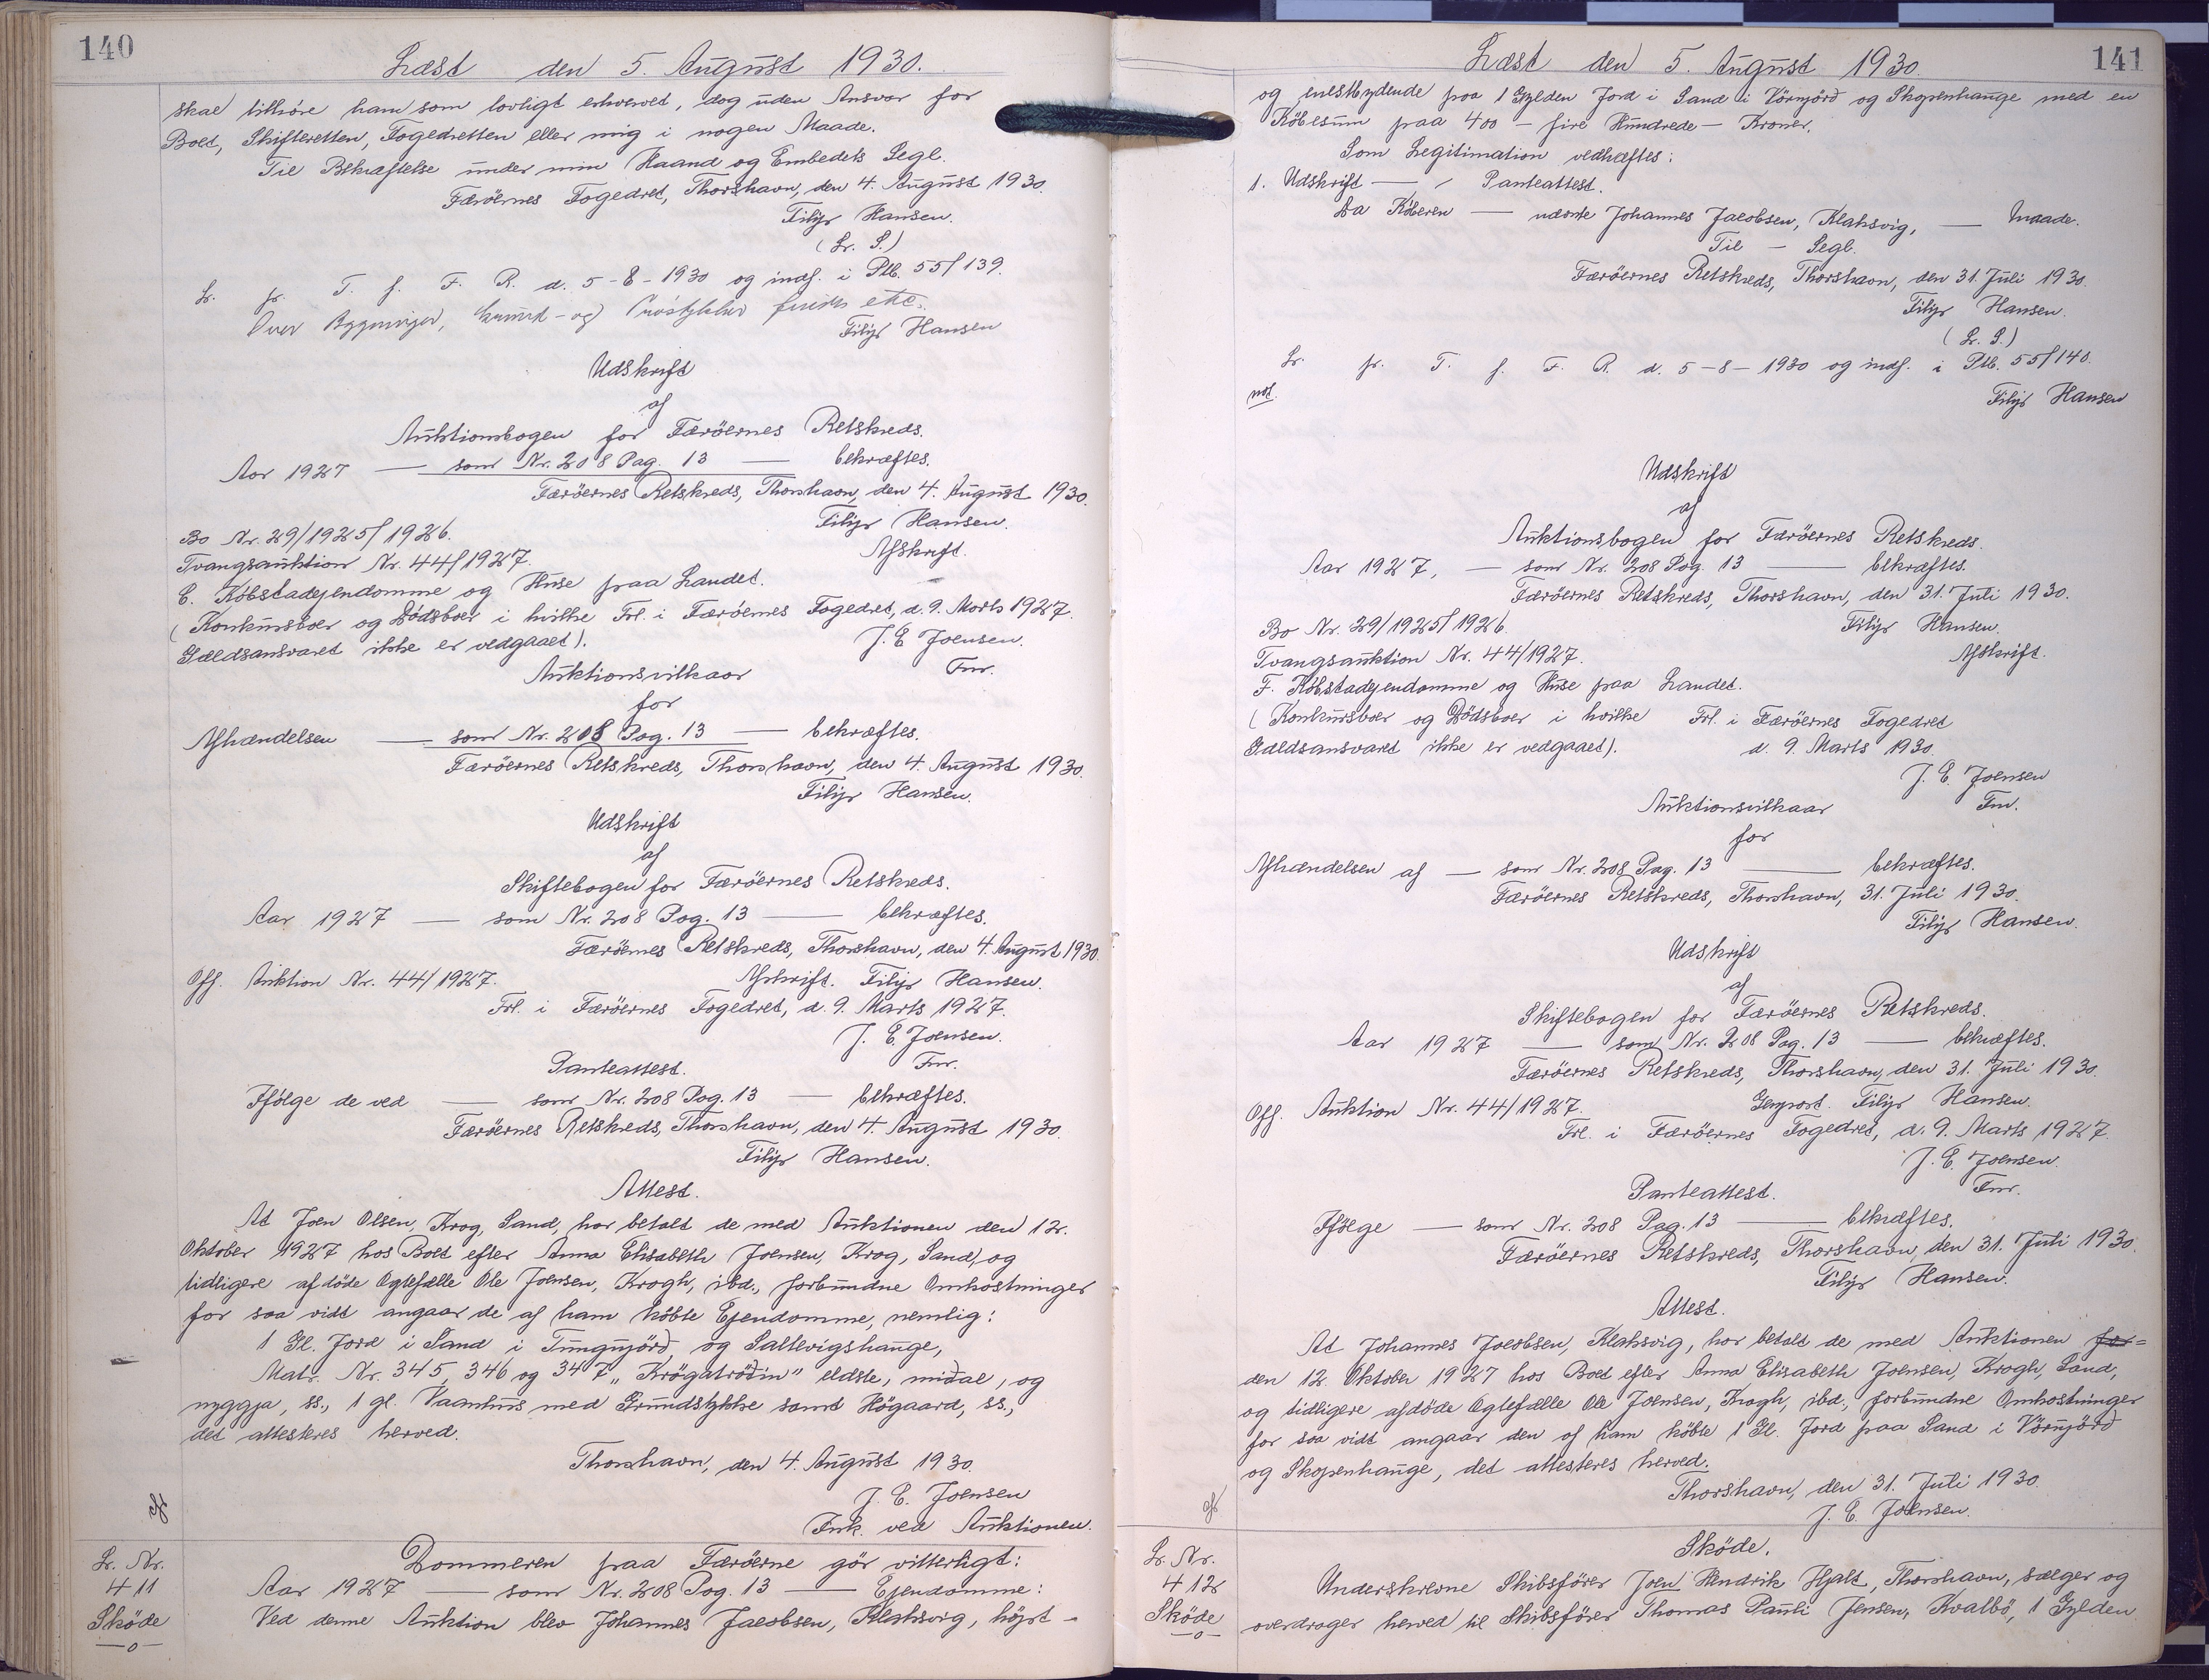 140
Læst den 5. August 1930.
skal tilhöre ham som lovligt erhvervet, dog uden Ansvar for
Boet, Skifteretten, Fogedretten eller mig i nogen Maade.
Til Bekræftelse under min Haand og Embedets Segl.
Færöernes Fogedret, Thorshavn, den 4. August 1930.
Filip Hansen.
(L. S.)
L. pr. T. f. F. R. d. 5-8-1930 og indf. i Ptb. 55/139.
Over Bygninger, Grund- og
Filip Hansen
Udskrift
af
Auktionsbogen for Færöernes Retskreds.
Aar 1927 — som Nr. 208 Pag. 13 — bekræftes.
Færöernes Retskreds, Thorshavn, den 4. August 1930.
Filip Hansen.
Bo Nr. 29/1925/1926.
Afskrift.
Tvangsauktion Nr. 44/1927.
C. Köbstadejendomme og Huse paa Landet.
(Konkursboer og Dödsboer i hvilke Frl. i Færöernes Fogedret, d. 9. Marts 1927.
Gældsansvaret ikke er vedgaaet).
J. E. Joensen.
Auktionsvilkaar
Fm.
for
Afhændelsen — som Nr. 208 Pag. 13 — bekræftes.
Færöernes Retskreds, Thorshavn, den 4. August 1930.
Filip Hansen.
Udskrift
af
Skiftebogen for Færöernes Retskreds.
Aar 1927 — som Nr. 208 Pag. 13 — bekræftes.
Færöernes Retskreds, Thorshavn, den 4. August 1930.
Off. Auktion Nr. 44/1927. Afskrift. Filip Hansen.
Frl. i Færöernes Fogedret, d. 9. Marts 1927.
J. E. Joensen.
Panteattest. Fm.
Ifölge de ved — som Nr. 208 Pag. 13 — bekræftes.
Færöernes Retskreds, Thorshavn, den 4. August 1930.
Filip Hansen.
Attest.
At Joen Olsen, Krog, Sand, har betalt de med Auktionen den 12.
Oktober 1927 hos Boet efter Anna Elisabeth Joensen, Krog, Sand, og
tidligere afdöde Ægtefælle Ole Joensen, Krogh, ibd., forbundne Omkostninger
for saa vidt angaar de af ham köbte Ejendomme, nemlig:
1 Gl. Jord i Sand i Tungujörd og Saltvigshauge,
Matr. Nr. 345, 346 og 347 „Krögatrödin" eldste, midal, og
nyggja, ss., 1 gl. Vaanhus med Grundstykke samt Högaard, ss.,
det attesteres herved.
Thorshavn, den 4. August 1930.
J. E. Joensen
Fmk. ved Auktionen.
L. Nr.
411
Sköde
—o—
Dommeren paa Færöerne gör vitterligt:
Aar 1927 — som Nr. 208 Pag. 13 — Ejendomme:
Ved denne Auktion blev Johannes Jacobsen, Klaksvig, höjst-
141
Læst den 5. August 1930.
og enestbydende paa 1 Gylden Jord i Sand i Vörnjörd og Skopenhauge med en
Köbesum paa 400 — fire Hundrede — Kroner.
Som Legitimation vedhæftes:
1. Udskrift — / Panteattest.
Da Köberen — nævnte Johannes Jacobsen, Klaksvig, — Maade.
Til — Segl.
Færöernes Retskreds, Thorshavn, den 31. Juli 1930.
Filip Hansen.
(L. S.)
L. pr. T. f. F. R. d. 5-8-1930 og indf. i Ptb. 55/140.
not.
Filip Hansen
Udskrift
af
Auktionsbogen for Færöernes Retskreds.
Aar 1927, — som Nr. 208 Pag. 13 — bekræftes.
Færöernes Retskreds, Thorshavn, den 31. Juli 1930.
Bo Nr. 29/1925/1926. Filip Hansen.
Tvangsauktion Nr. 44/1927. Afskrift.
F. Köbstadejendomme og Huse paa Landet.
(Konkursboer og Dödsboer i hvilke Frl. i Færöernes Fogedret
Gældsansvaret ikke er vedgaaet). d. 9. Marts 1930.
J. E. Joensen
Auktionsvilkaar Fm.
for
Afhændelsen af — som Nr. 208 Pag. 13 — bekræftes.
Færöernes Retskreds, Thorshavn, 31. Juli 1930.
Filip Hansen.
Udskrift
af
Skiftebogen for Færöernes Retskreds.
Aar 1927 — som Nr. 208 Pag. 13 — bekræftes.
Færöernes Retskreds, Thorshavn, den 31. Juli 1930.
Off. Auktion Nr. 44/1927. Genpart. Filip Hansen.
Frl. i Færöernes Fogedret, d. 9. Marts 1927.
J. E. Joensen.
Panteattest. Fm.
Ifölge — som Nr. 208 Pag. 13 — bekræftes.
Færöernes Retskreds, Thorshavn, den 31. Juli 1930.
Filip Hansen.
Attest.
At Johannes Jacobsen, Klaksvig, har betalt de med Auktionen for=
den 12. Oktober 1927 hos Boet efter Anna Elisabeth Joensen, Krogh, Sand,
og tidligere afdöde Ægtefælle Ole Joensen, Krogh, ibd., forbundne Omkostninger
for saa vidt angaar den af ham köbte 1 Gl. Jord paa Sand i Vörnjörd
og Skopenhauge, det attesteres herved.
Thorshavn, den 31. Juli 1930.
J. E. Joensen.
L. Nr.
412
Sköde
—o—
Sköde.
Underskrevne Skibsförer Joen Hendrik Hjalt, Thorshavn, sælger og
overdrager herved til Skibsförer Thomas Pauli Jensen, Kvalbö, 1 Gylden